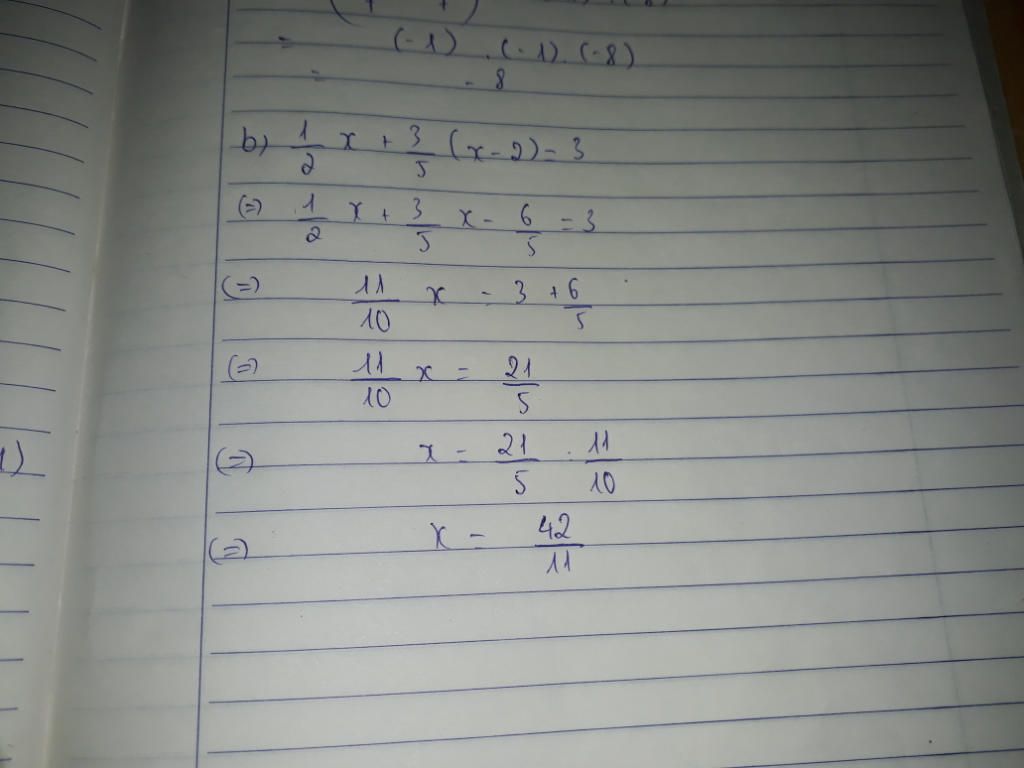 = (-1) . (-1) . (-8)
= - 8
b) 1/2 x + 3/5 (x - 2) = 3
(=) 1/2 x + 3/5 x - 6/5 = 3
(=) 11/10 x = 3 + 6/5
(=) 11/10 x = 21/5
(=) x = 21/5 . 11/10
(=) x = 42/11